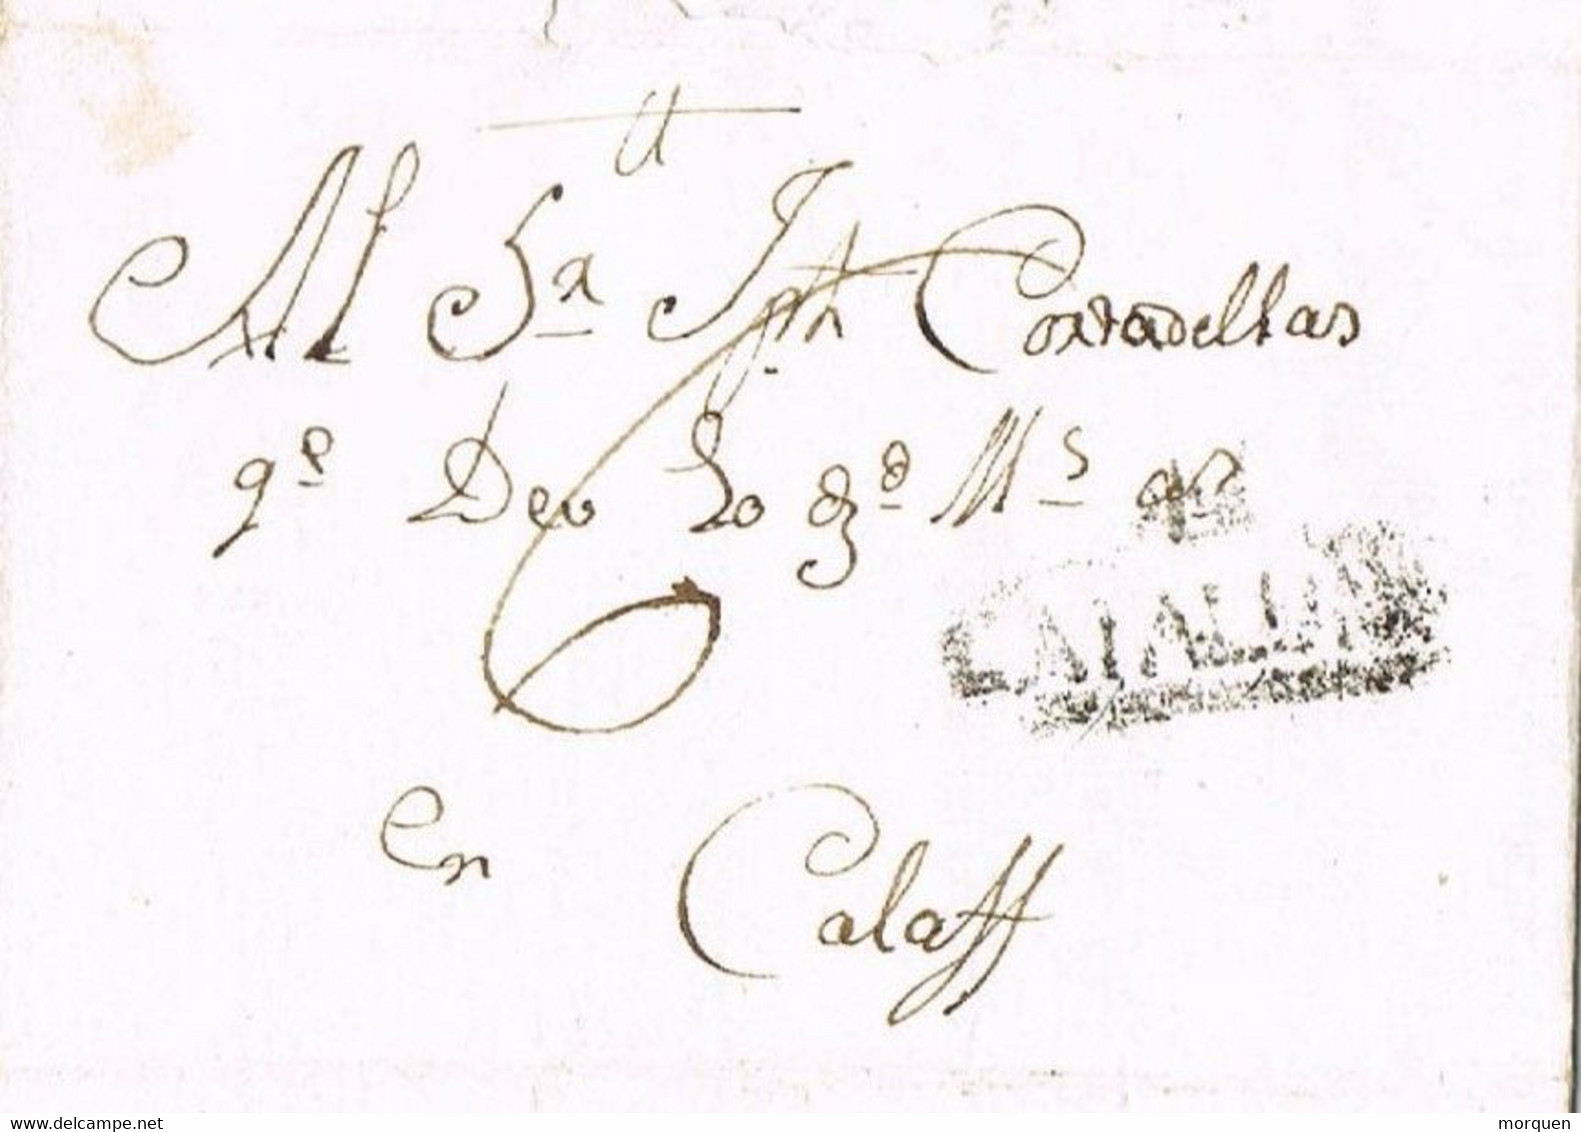 Al Sr Jph Cortadellas
qe Deu Lo gd Ms as
CATALUÑA
en Calaff
www.delcampe.net
morquen